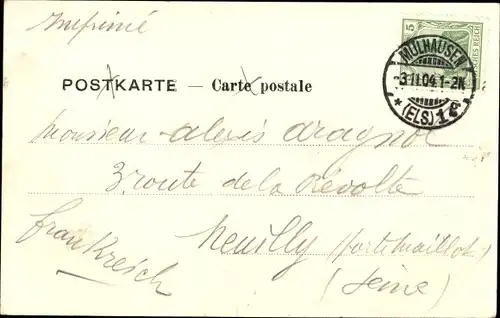 Imprimé
5
DEUTSCHES REICH
MÜLHAUSEN
3 11 04 1-2N
(ELS) 1 c
POSTKARTE — Carte postale
Monsieur Alexis Aragnol
3 route de la Révolte
Neuilly (Porte Maillot)
Frankreich
(Seine)